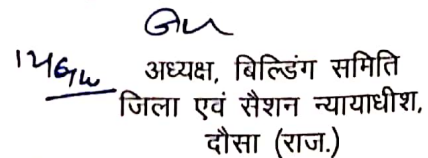 अध्यक्ष, बिल्डिंग समिति
जिला एवं सैशन न्यायाधीश,
दौसा (राज.)